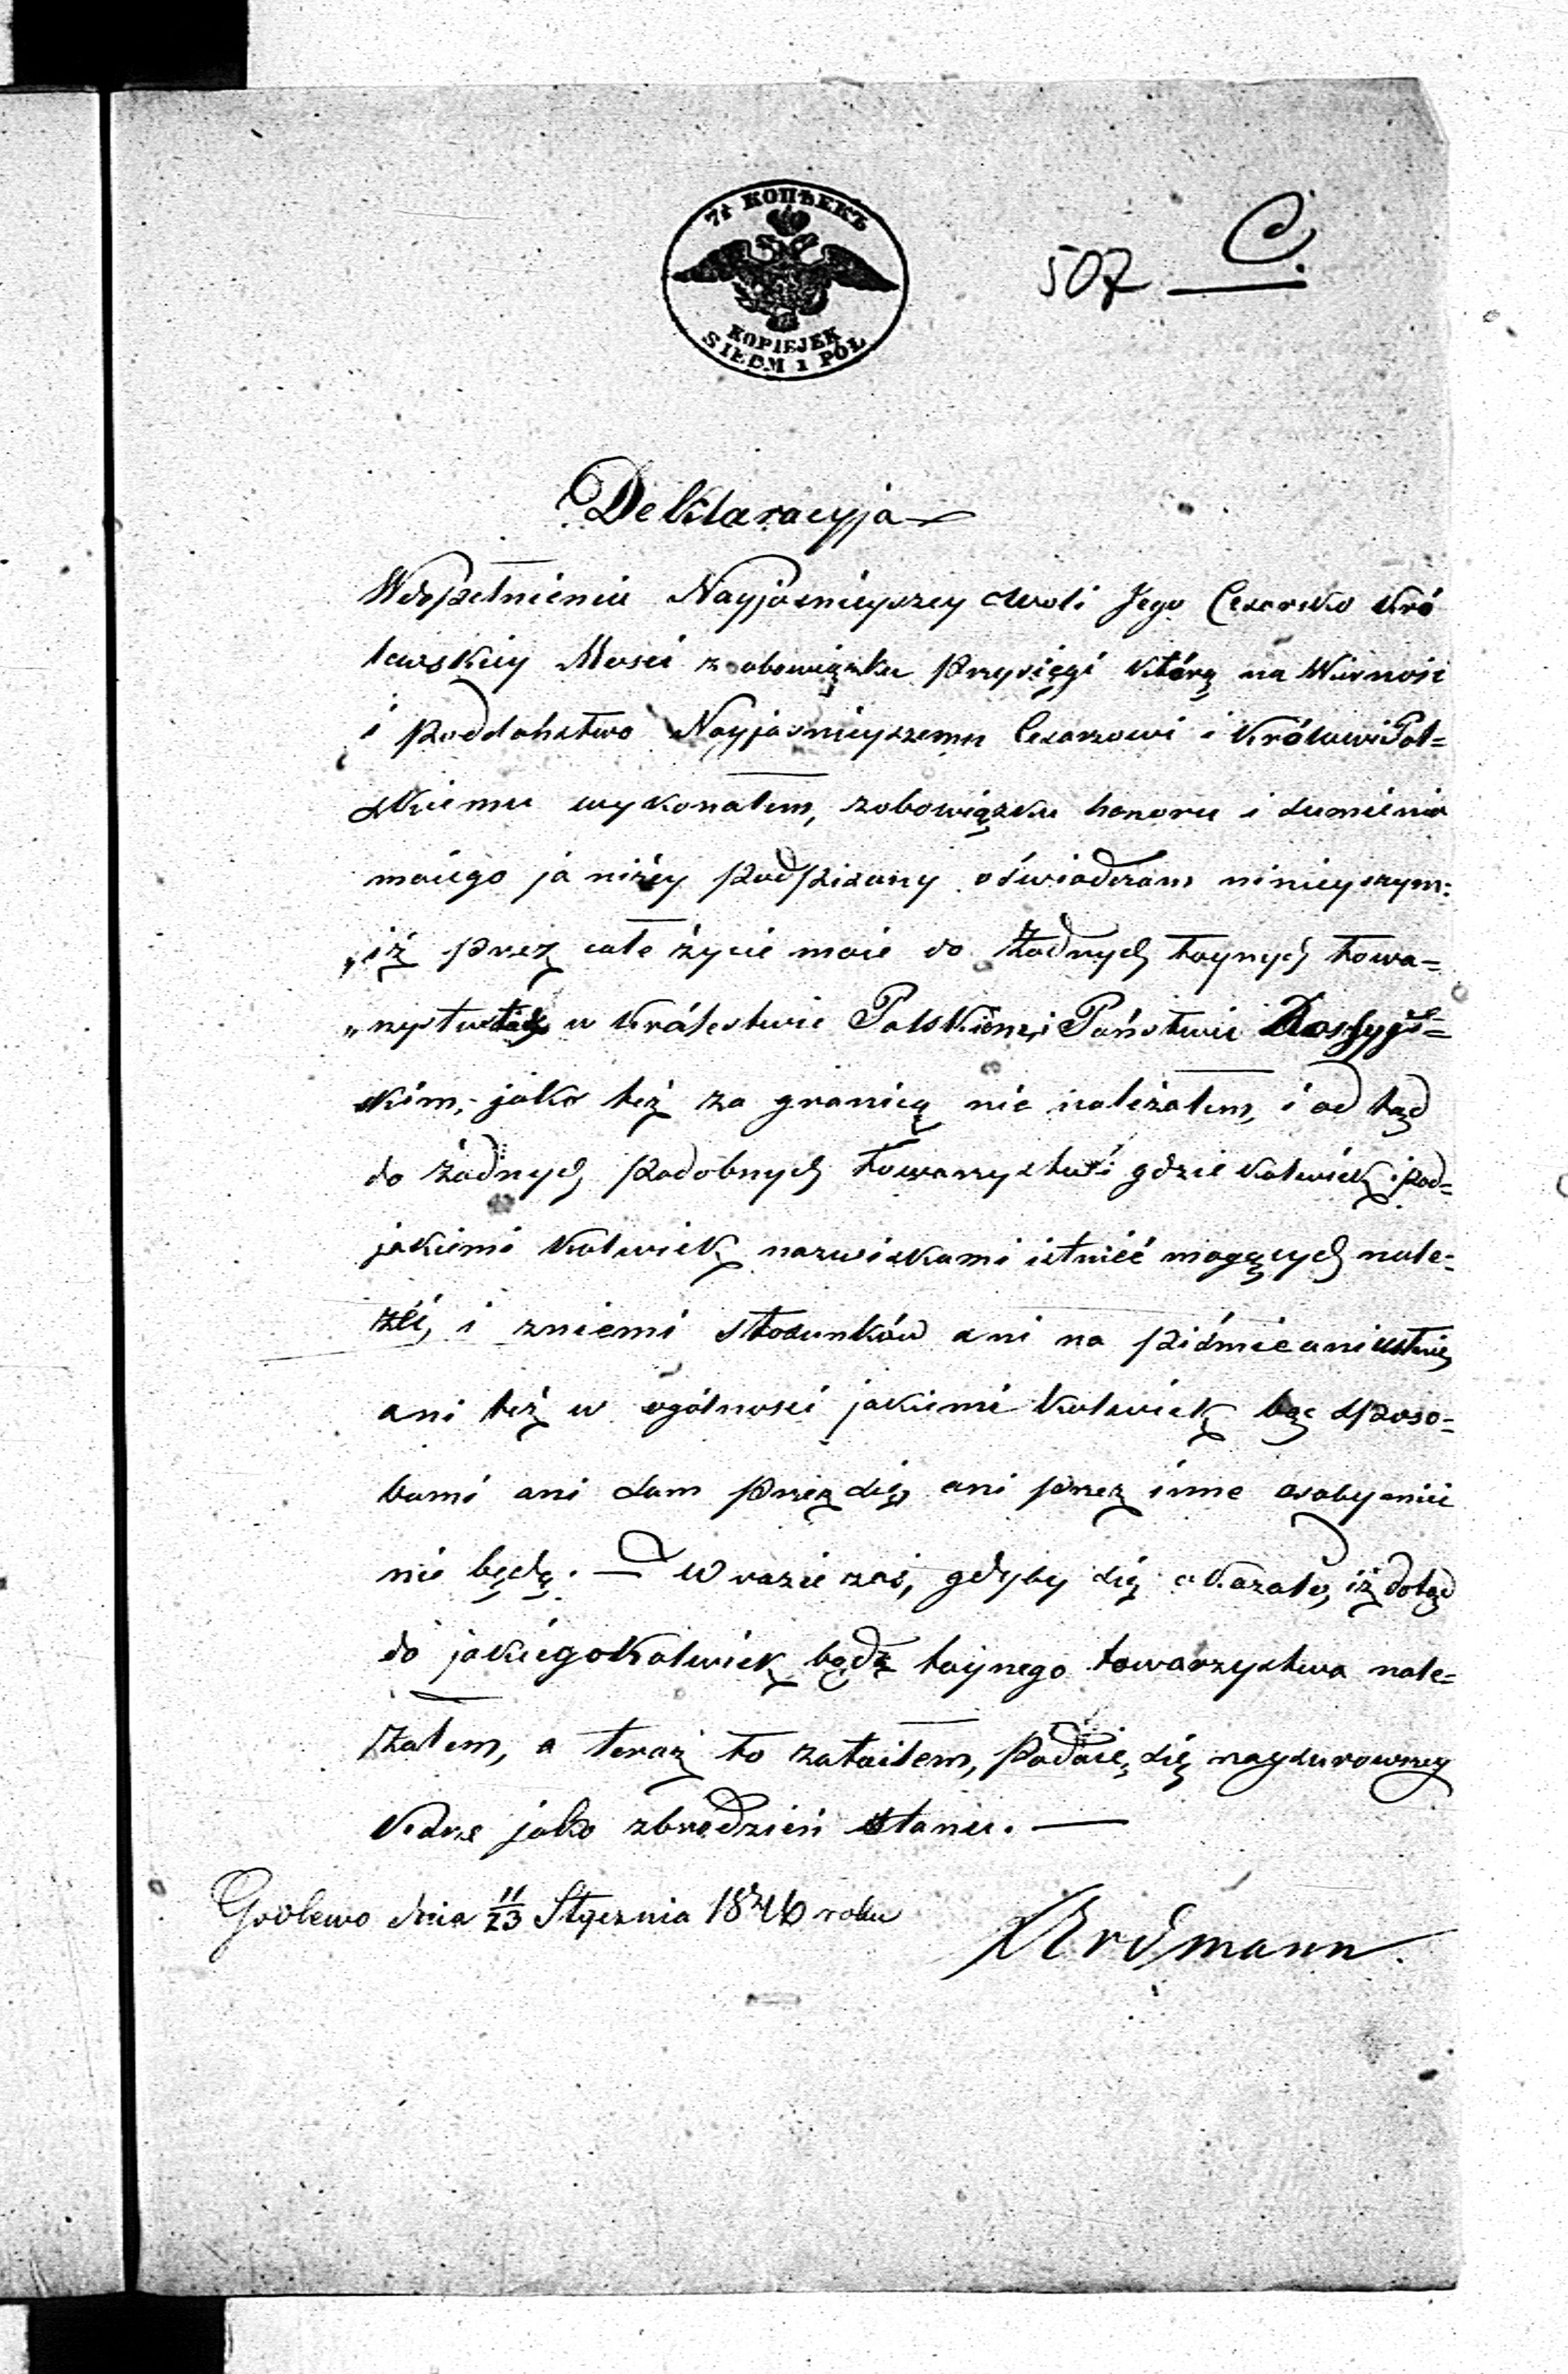 7½ КОПѢЕКЪ
KOPIEJEK
SIEDM I PÓŁ
507 C.
Deklaracyja
W dopełnieniu Nayjasnieyszey Woli Jego Cesarsko Kró
lewskiey Mosci z obowiązku przysięgi którą na Wiernośc
i poddaństwo Nayjasnieyszemu Cesarzowi i Królowi Pol=
skiemu wykonałem, z obowiązku honoru i sumienia
moiego ja niżey podpisany oświadczam ninieyszym:
„iż przez całe życie moie do żadnych taynych towa=
„rzystw w Królestwie Polskiem i Państwie Rossyjs=
skim, jako też za granicą nie należałem, i od tąd
do żadnych podobnych towarzystw gdzie kolwiek i pod=
jakiemi kolwiek nazwiskami istnieć mogących nale=
żeć, i z niemi stosunków ani na piśmie ani ustnie,
ani też w ogólności jakiemi kolwiek bąć sposo=
bami ani sam przez się, ani przez inne osoby mieć
nie będę. — W razie zaś, gdyby się okazało, iż dotąd
do jakiegokolwiek bądź taynego towarzystwa nale=
żałem, a teraz to zataiłem, poddaię się naysurowszey
karze jako zbrodzień stanu. —
Goslewo dnia 11/23 Stycznia 1846 roku
Erdmann